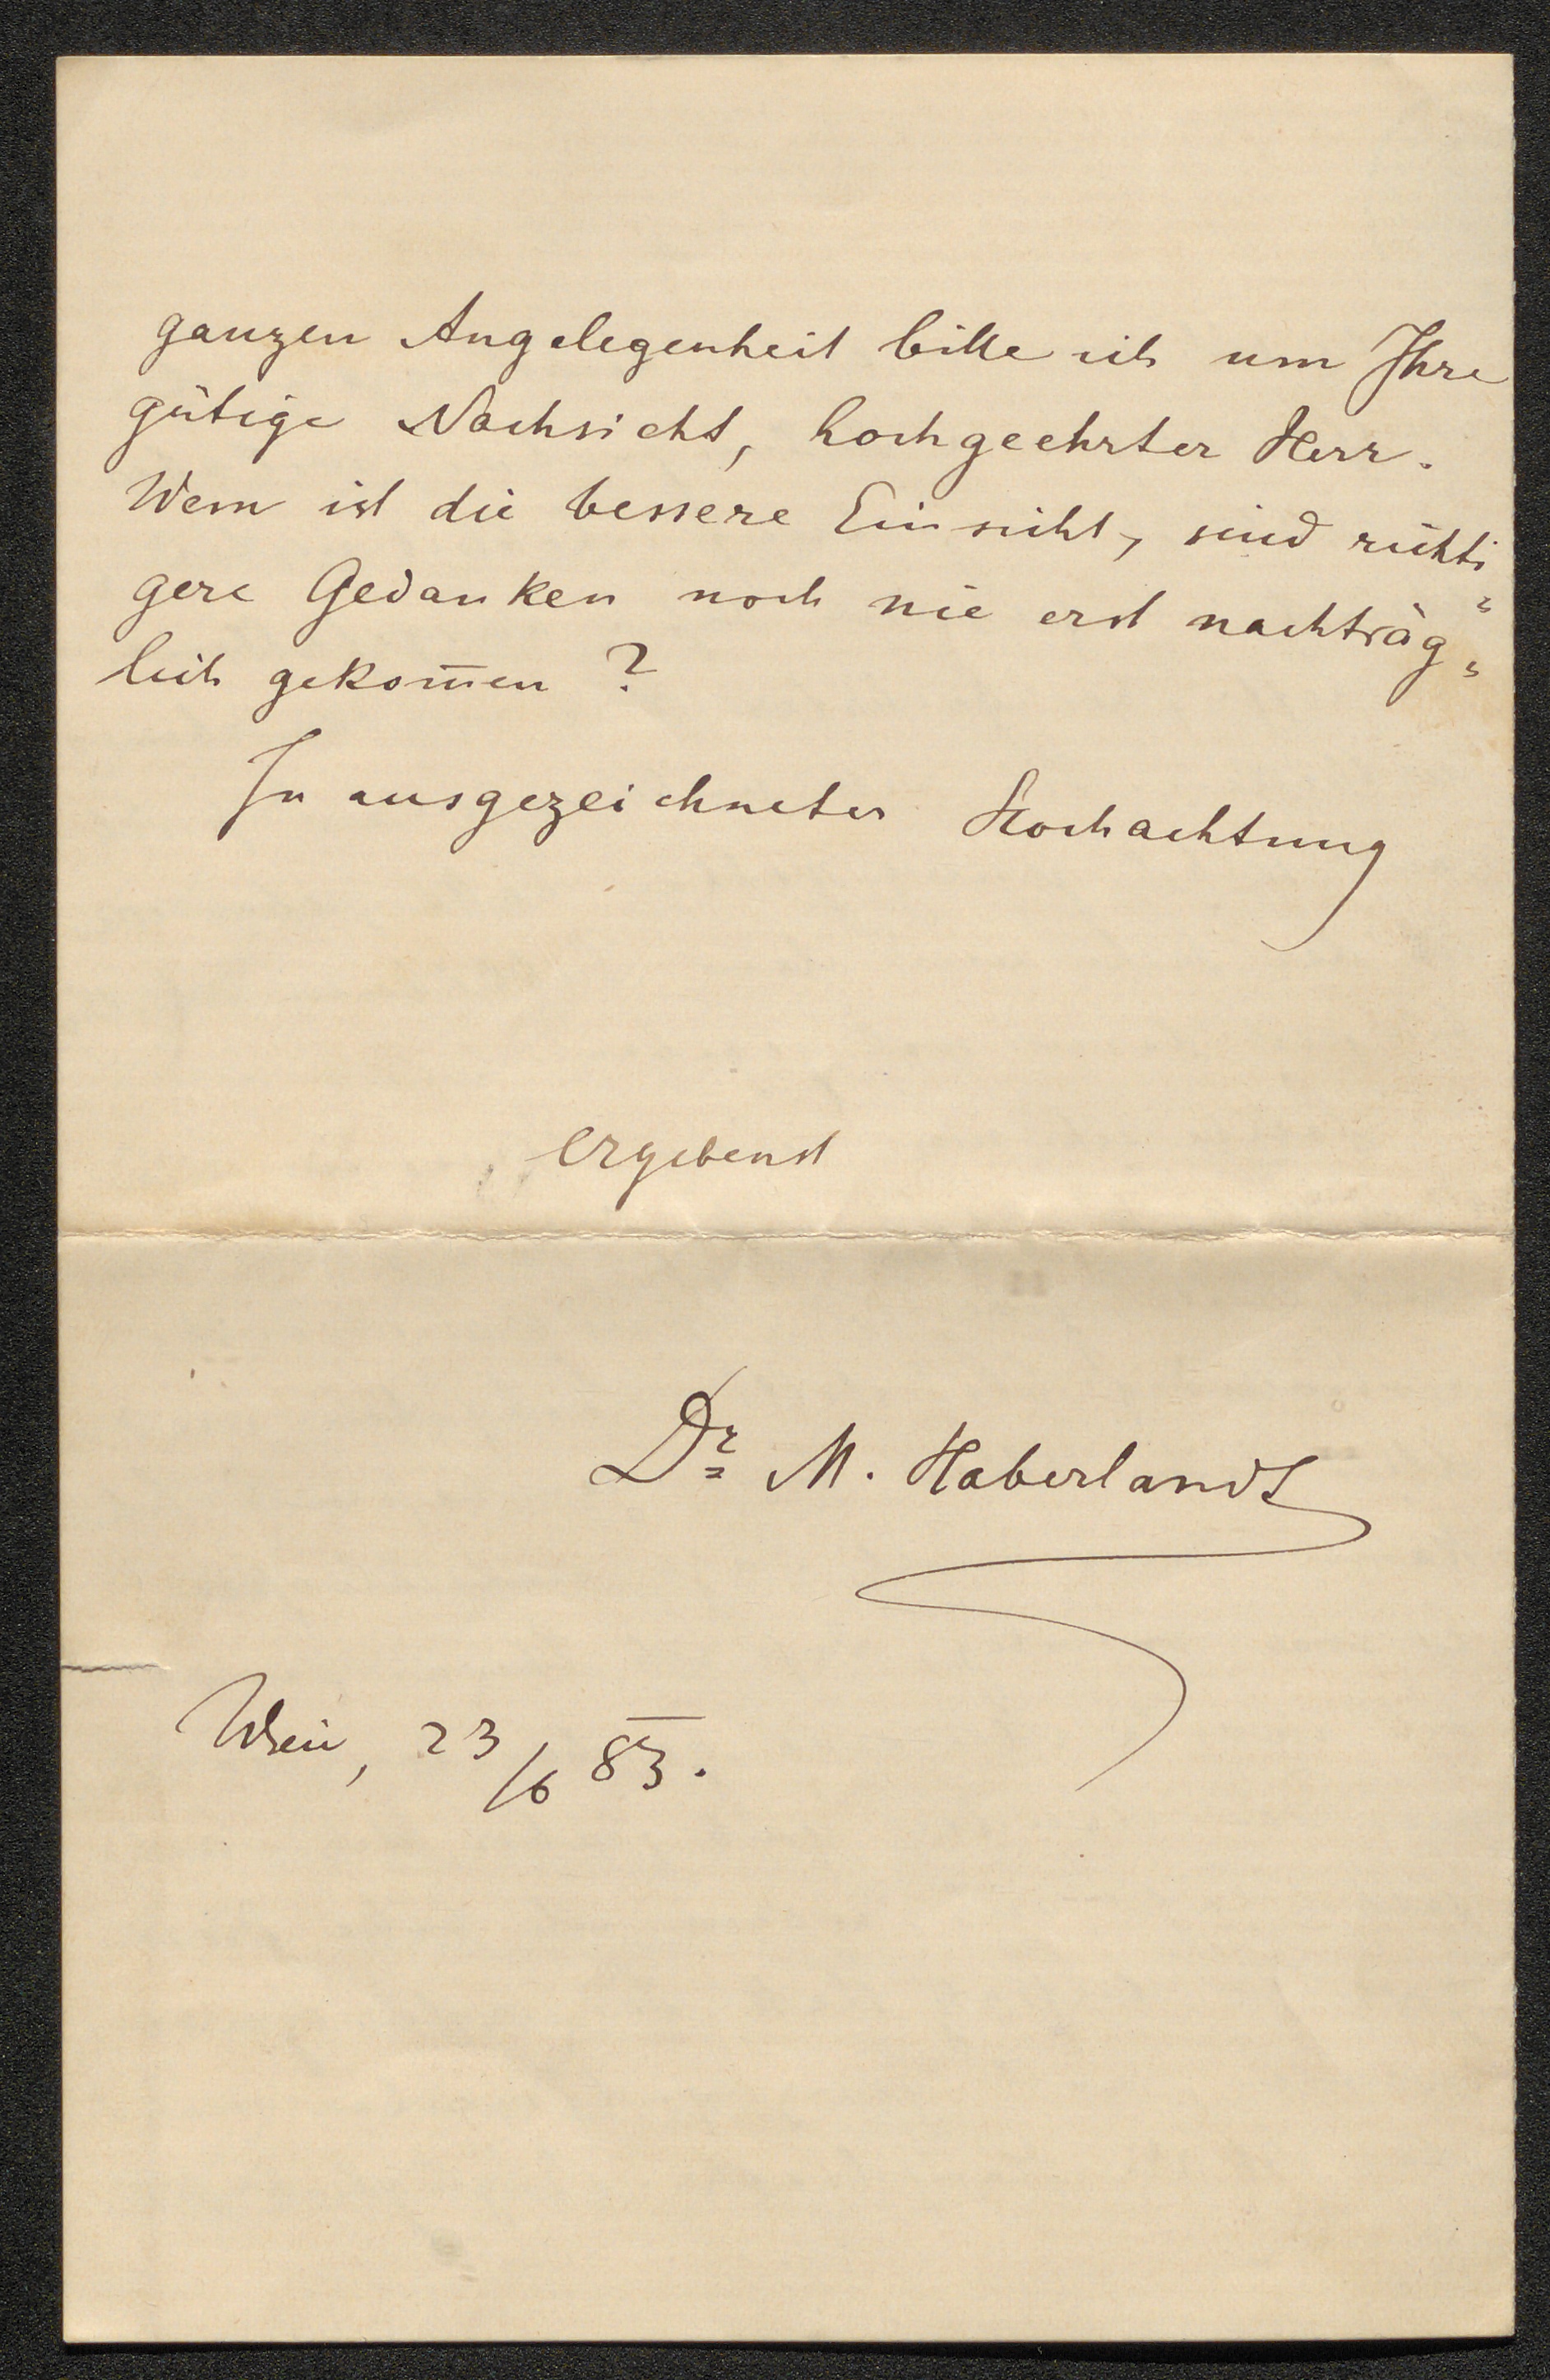 ganzen Angelegenheit bitte ich um Ihre
gütige Nachsicht, hochgeehrter Herr.
Wem ist die bessere Einsicht, sind richti=
gere Gedanken noch nie erst nachträg=
lich gekom̅en ?
In ausgezeichneter Hochachtung
ergebenst
Dr. M. Haberlandt
Wien, 23/6 83.